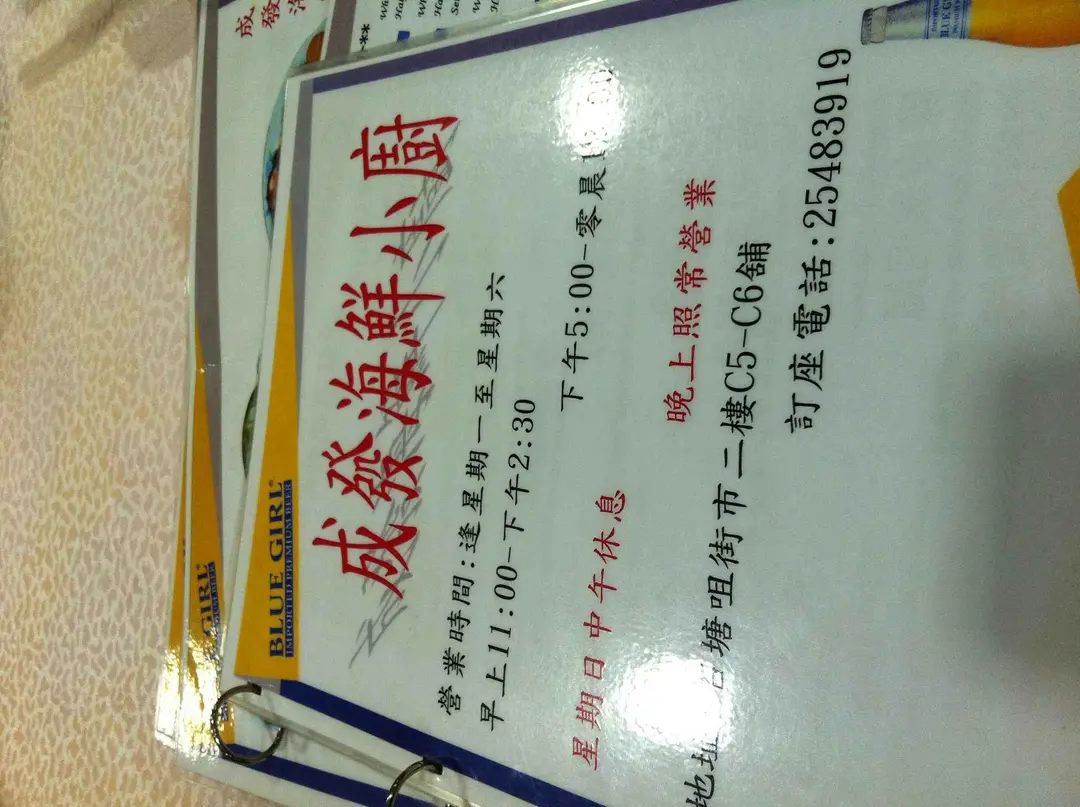 BLUE GIRL
IMPORTED PREMIUM BEER
成發海鮮小廚
營業時間:逢星期一至星期六
早上11:00-下午2:30
下午5:00-零晨1
星期日中午休息
晚上照常營業
地址 塘咀街市二樓C5-C6舖
訂座電話:25483919
成發海
GIRL
BLUE GIRL